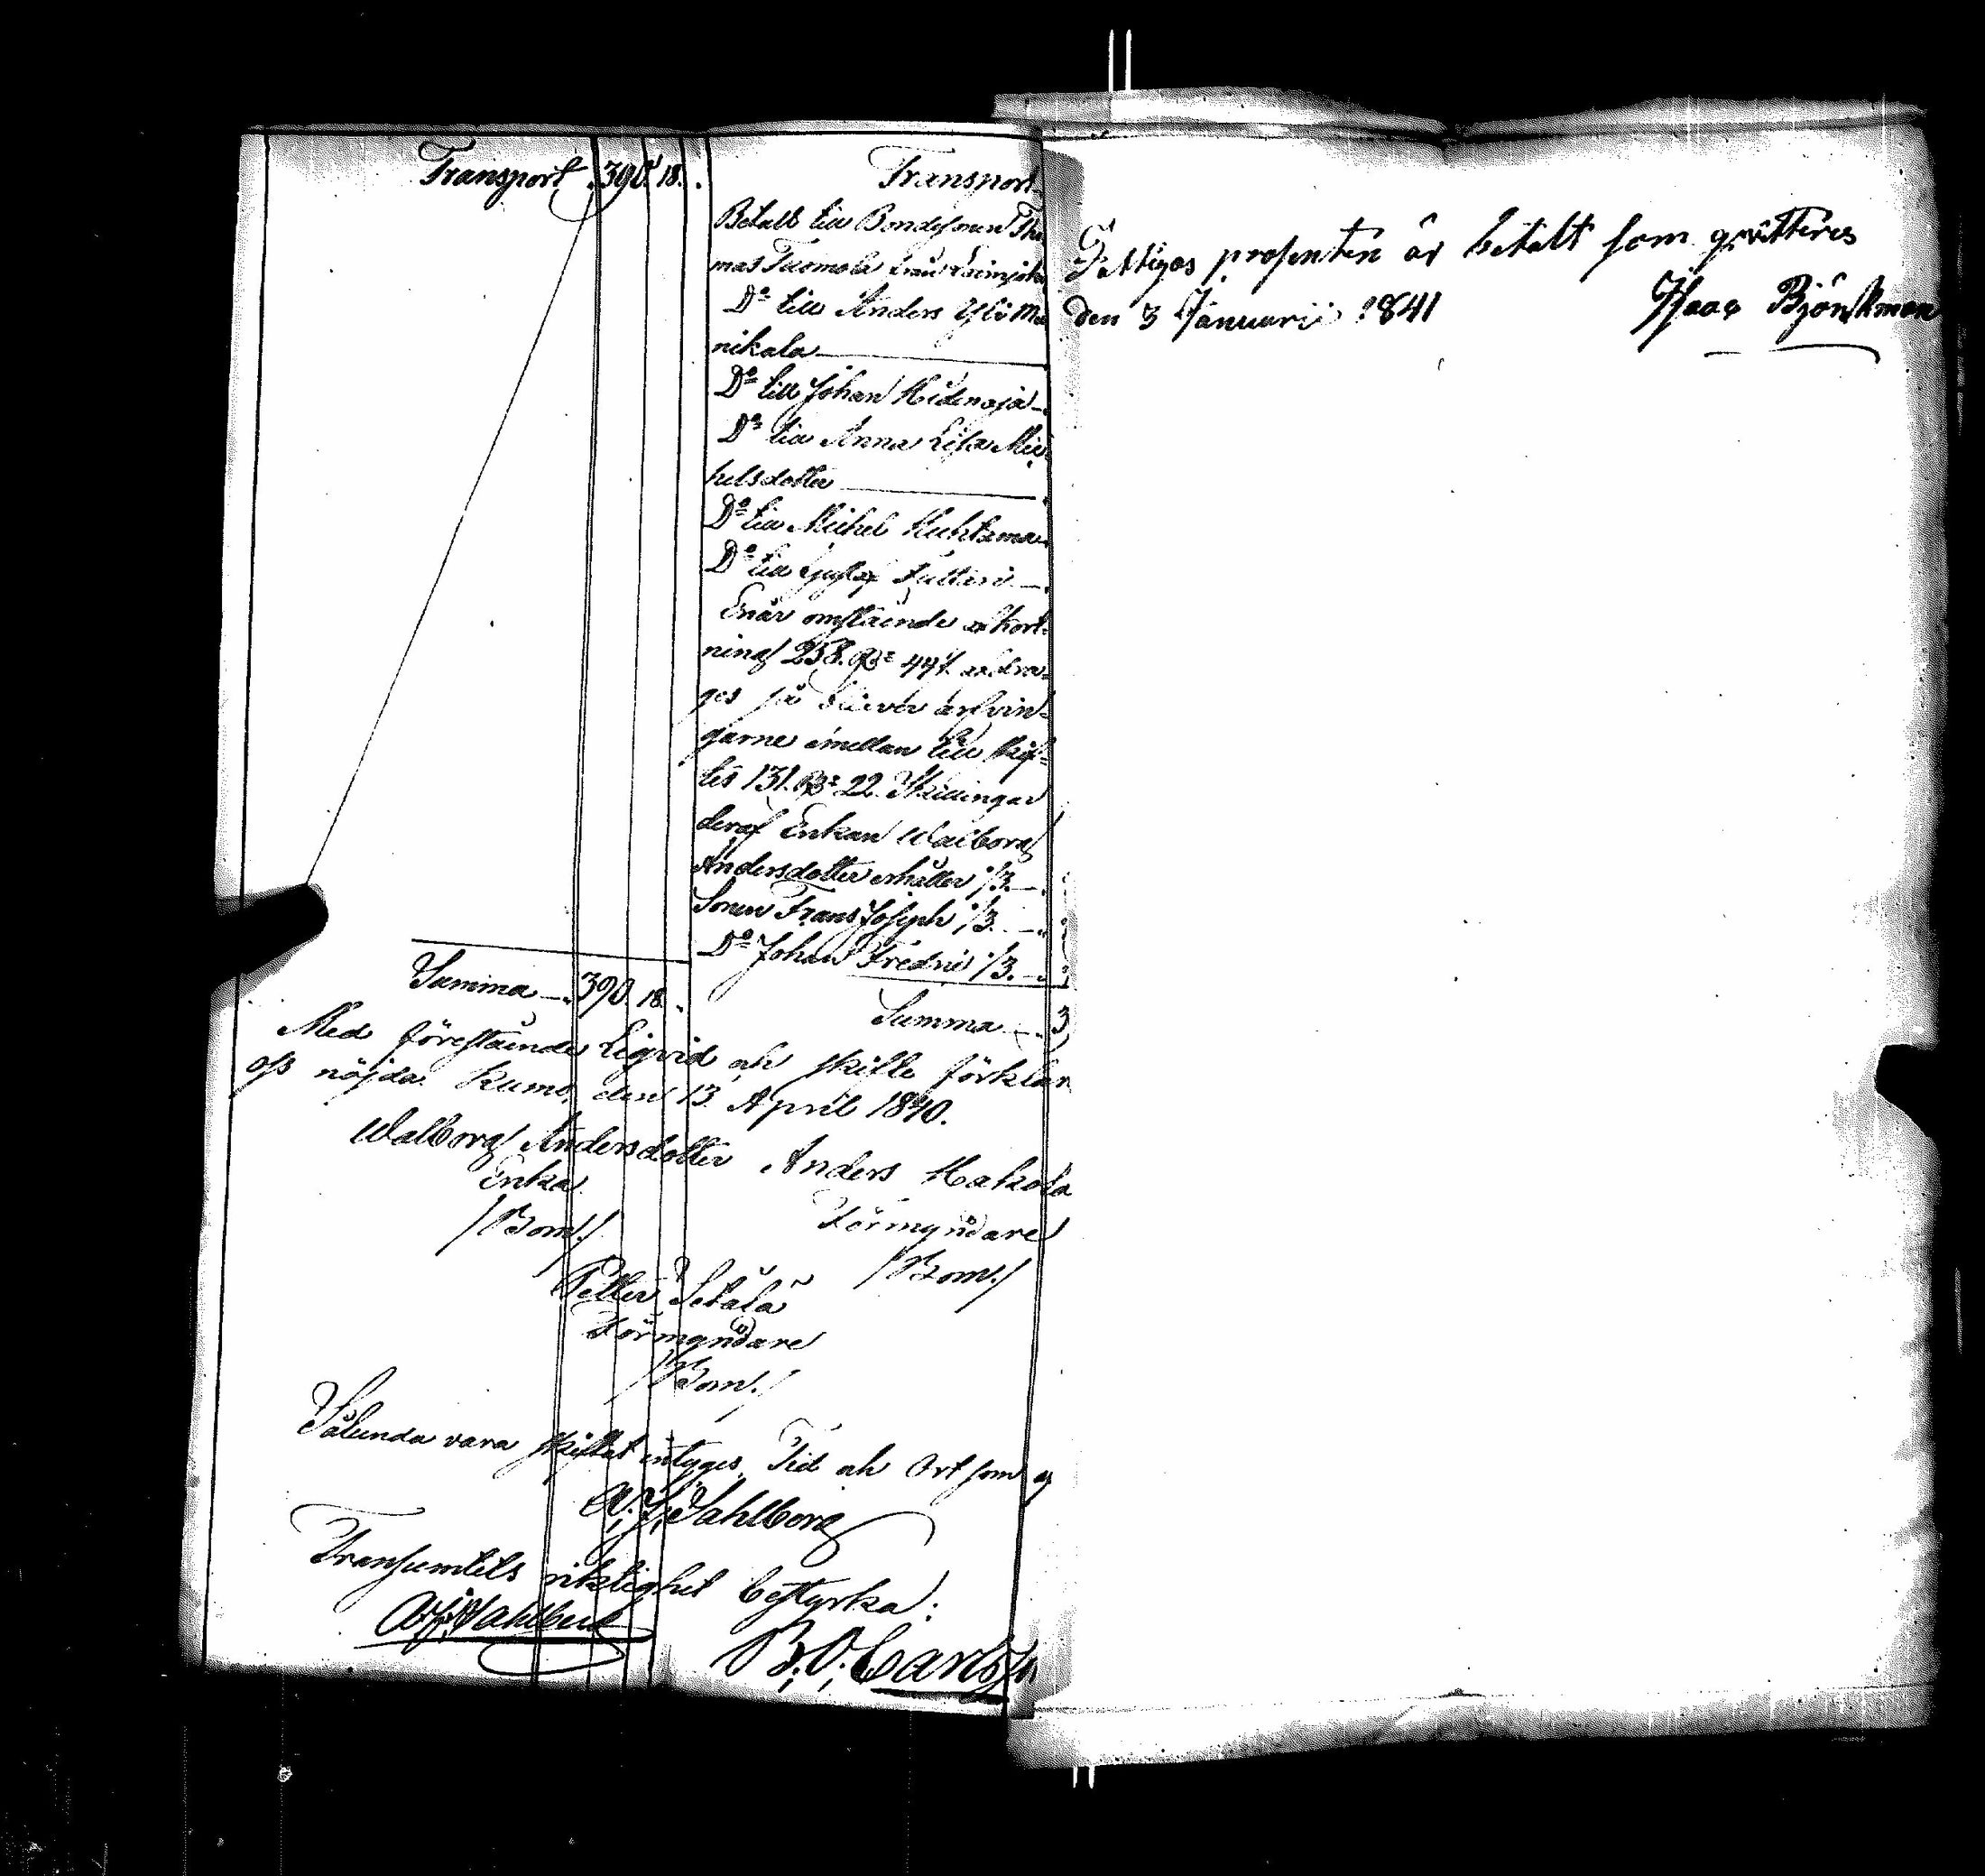 Transport 390. 18.
Transport
Betalt till Bondesonen Tho
mas Tuomola från
Do till Anders Yli
nikala
Do till Johan Hidenoja
Do till Anna Lisa Mic
helsdotter
Do till Michel Huhtama
Do till Gustaf Futteri
Enär omstående afkort-
ning 258. Rd 44 s. afdra-
ges så blifver arfvin-
garne emellan till skif-
tes 131. Rd 22 Skillingar
deraf Enkan Walborg
Andersdotter erhåller 1/3.
Sonen Frans Joseph 1/3.
Do Johan Fredric 1/3.
Summa 390. 18.
Summa 3
Med föreståinde Liqvid och skifte förklar
oss nöjda. Kumo, den 13 April 1840.
Walborg Andersdotter Anders Hakola
Enka Förmyndare
/Bom./ /Bom./
Petter Setälä
Förmyndare
/Bom./
Sålunda vara skiftat intyges, Tid och Ort som
A. J. Wahlberg
Transumtets riktighet bestyrka:
A. J. Wahlberg
B. O. Carls
Fattigas prosenten är betalt som qvitteres
den 3 Januarii 1841 Isaac Björkman